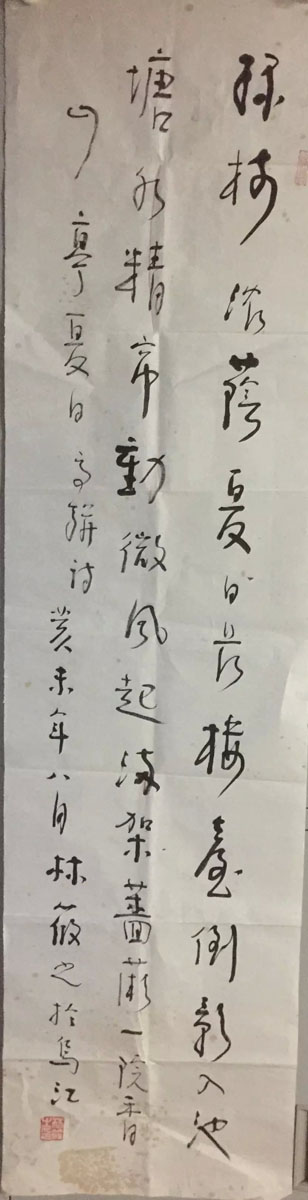 綠樹濃蔭夏日長楼臺倒影入池
塘水精帘動微風起滿架薔薇一院香
山亭夏日高駢詩癸未年八月林筱之於烏江